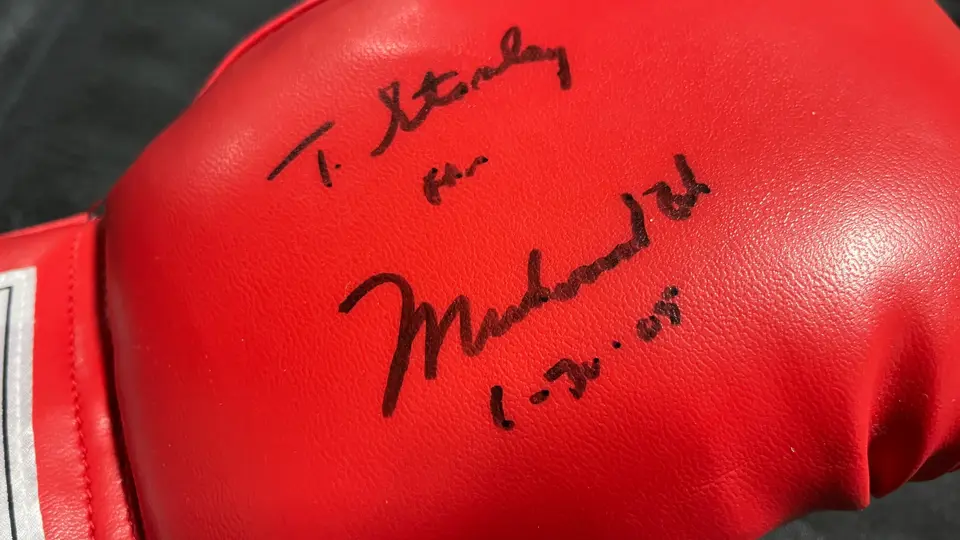 T. Stanley
From
Muhammad Ali
1-30-05